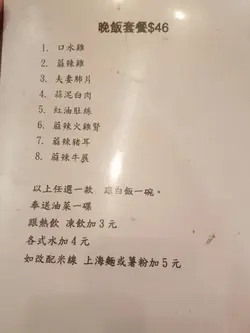 晚飯套餐$46
1. 口水雞
2. 麻辣雞
3. 夫妻肺片
4. 蒜泥白肉
5. 紅油肚絲
6. 麻辣火雞腎
7. 麻辣豬耳
8. 麻辣牛展
以上任選一款 跟白飯一碗。
奉送油菜一碟
跟熱飲 凍飲加 3 元
各式水加 4 元
如改配米線 上海麵或薯粉加 5 元